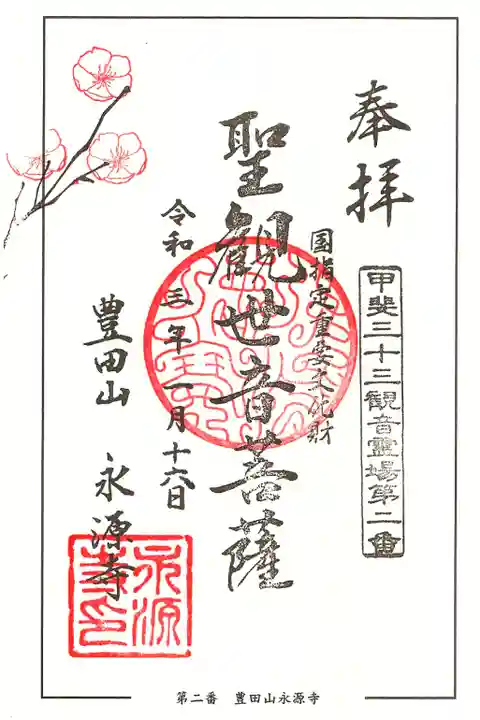 奉拝
甲斐三十三観音霊場第二番
国指定重要文化財
聖観世音菩薩
令和五年一月十六日
豊田山 永源寺
永源寺印
第二番 豊田山永源寺